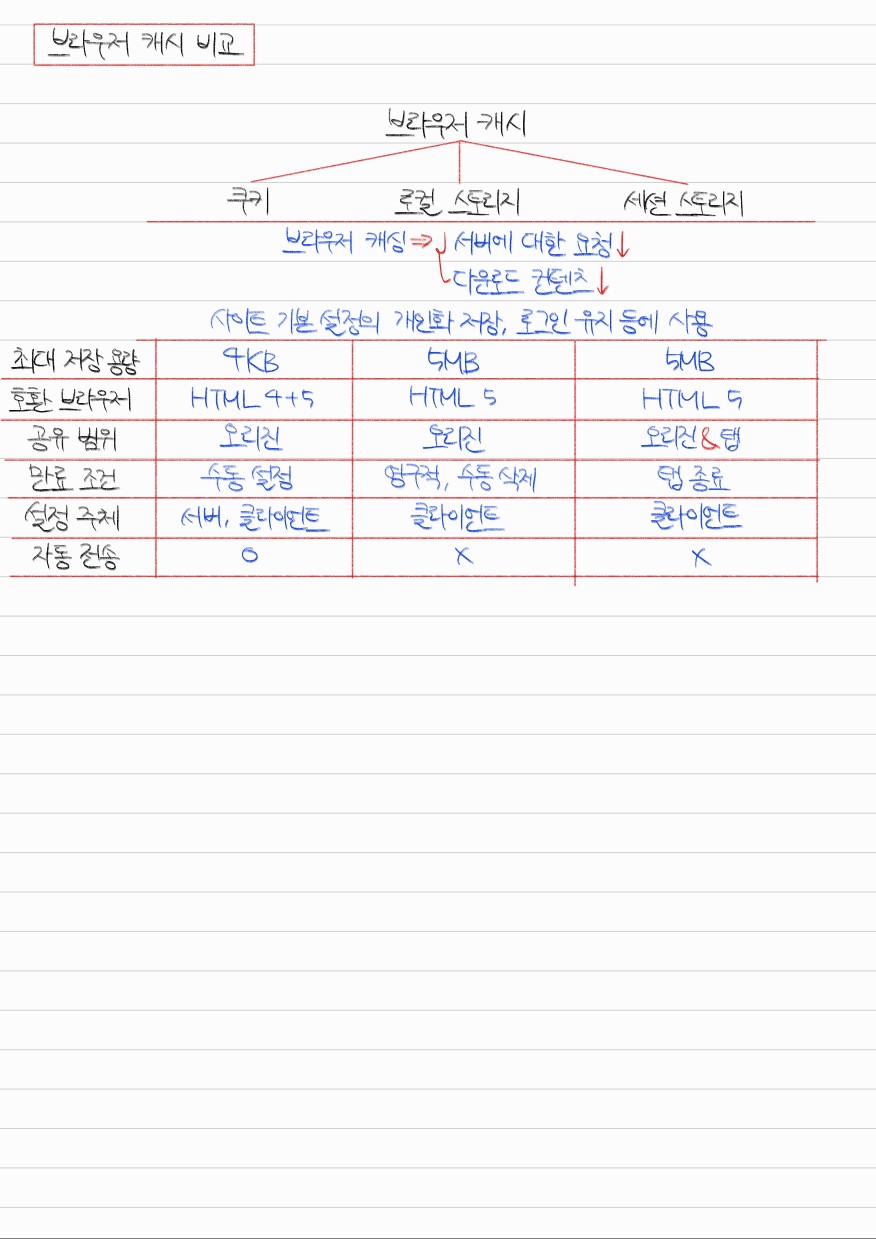 브라우저 캐시 비교
브라우저 캐시
쿠키 로컬 스토리지 세션 스토리지
브라우저 캐싱 ⇒ 서버에 대한 요청↓
다운로드 컨텐츠↓
사이트 기본 설정의 개인화 저장, 로그인 유지 등에 사용
최대 저장 용량 4KB 5MB 5MB
호환 브라우저 HTML 4+5 HTML 5 HTML 5
공유 범위 오리진 오리진 오리진&탭
만료 조건 수동 설정 영구적, 수동 삭제 탭 종료
설정 주체 서버, 클라이언트 클라이언트 클라이언트
자동 전송 O X X